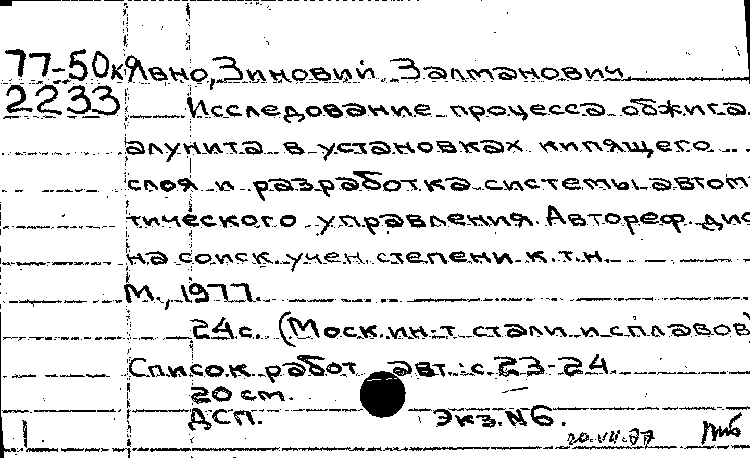 77-50к Явно, Зиновий Залманович
2233 Исследование процесса обжига
алунита в установках кипящего
слоя и разработка системы автома
тического управления. Автореф. дис
на соиск. учен. степени к.т.н.
М., 1977.
24 с. (Моск. ин-т стали и сплавов)
Список работ авт.: с. 23-24
20 см.
ДСП. Экз. N 6.
20.VII.77